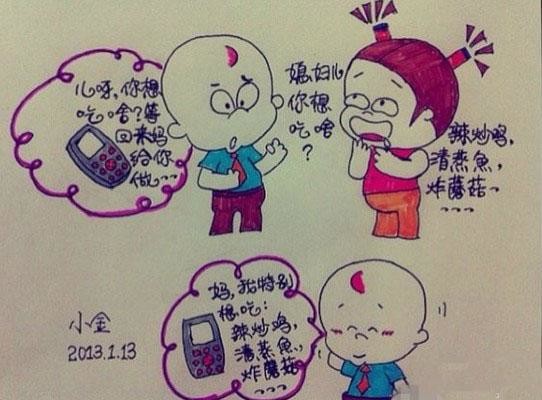 儿呀,你想
吃啥?等
回来妈
给你
做~~~
媳妇儿
你想
吃啥
?
辣炒鸡,
清蒸魚,
炸蘑菇~
~~~
妈,我特别
想吃:
辣炒鸡,
清蒸魚,
炸蘑菇
~~~
小金
2013.1.13